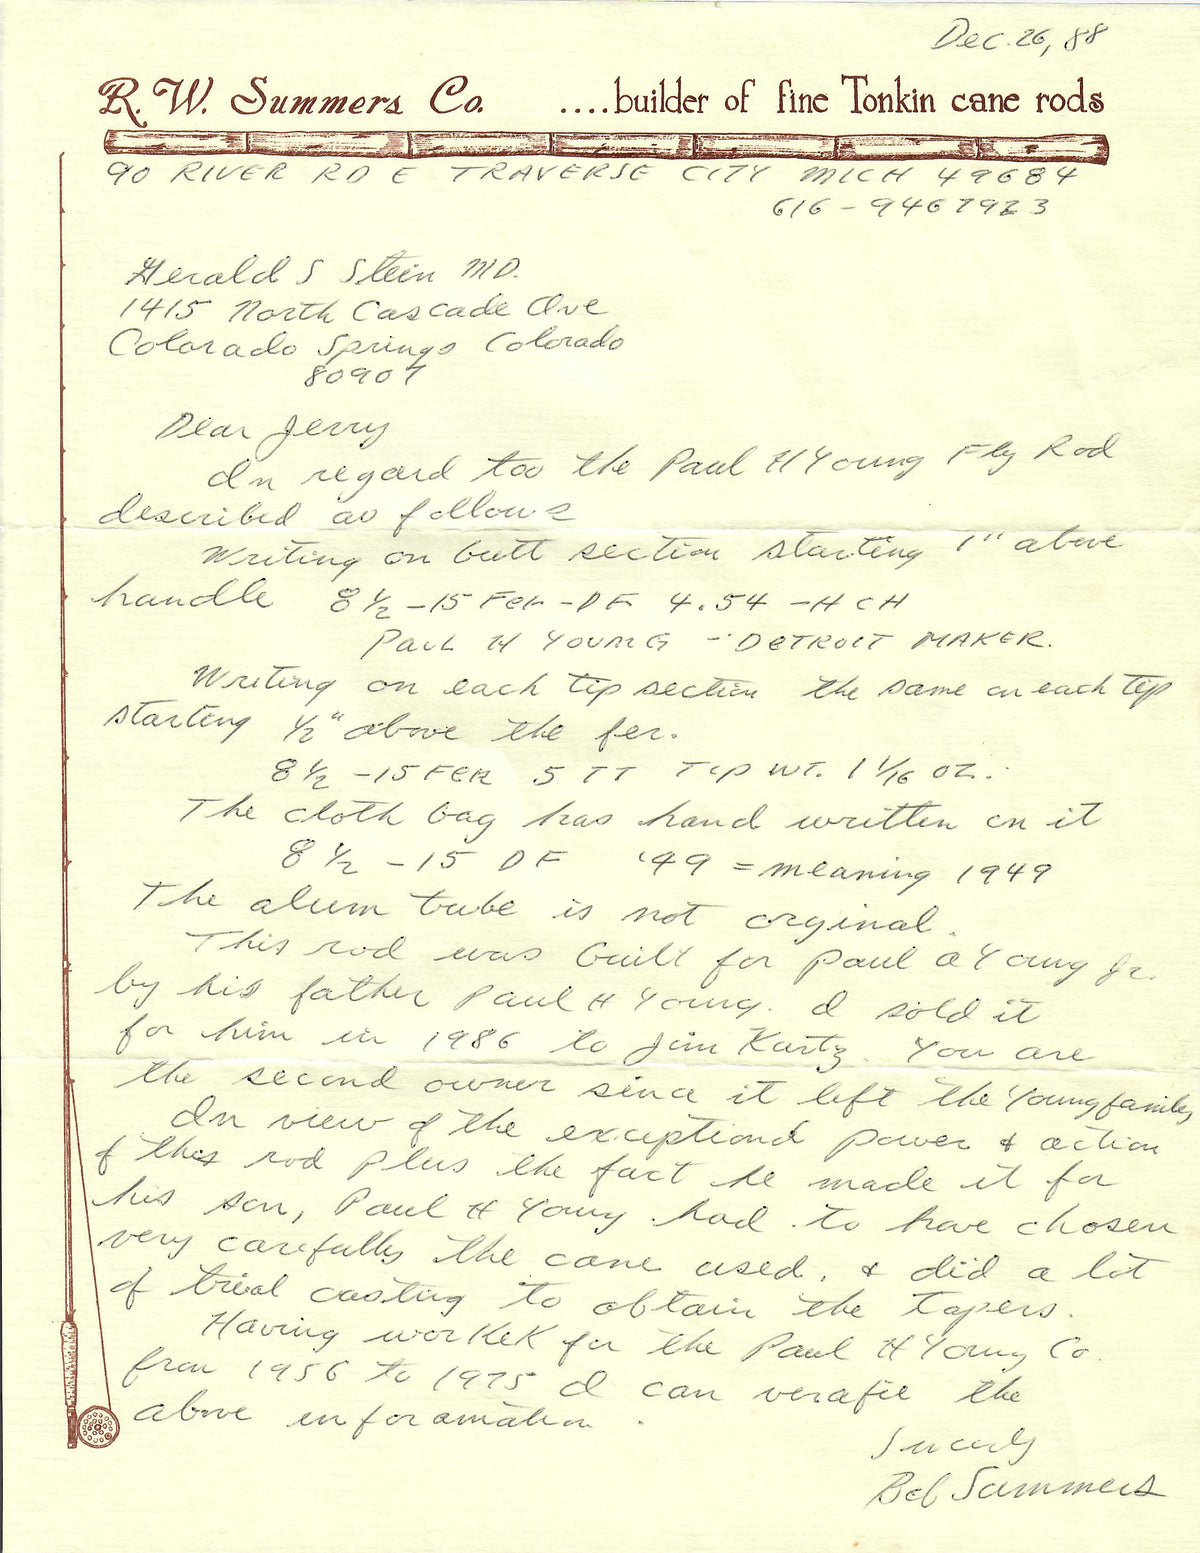 Dec. 26, 88
R. W. Summers Co. ....builder of fine Tonkin cane rods
90 RIVER RD E TRAVERSE CITY MICH 49684
616-9467923
Herald S Stein MD.
1415 North Cascade Ave
Colorado Springs Colorado
80907
Dear Jerry
In regard too the Paul H Young Fly Rod
described as follows
Writing on butt section starting 1" above
handle 8 1/2 -15 FER -DF 4.54 -HCH
PAUL H YOUNG - DETROIT MAKER.
Writing on each tip section the same on each tip
starting 1/2" above the fer.
8 1/2 -15 FER 5 TT TIP WT. 1 1/16 OZ.
The cloth bag has hand written on it
8 1/2 -15 DF '49 = meaning 1949
The alum tube is not orginal.
This rod was built for Paul a Young Jr.
by his father Paul H Young. I sold it
for him in 1986 to Jim Kurtz. You are
the second owner since it left the Young family
In view of the exceptional power & action
of this rod plus the fact he made it for
his son, Paul H Young had to have chosen
very carefully the cane used, & did a lot
of trial casting to obtain the tapers.
Having worked for the Paul H Young Co.
from 1956 to 1975 I can verafie the
above information.
Sincerly
Bob Summers